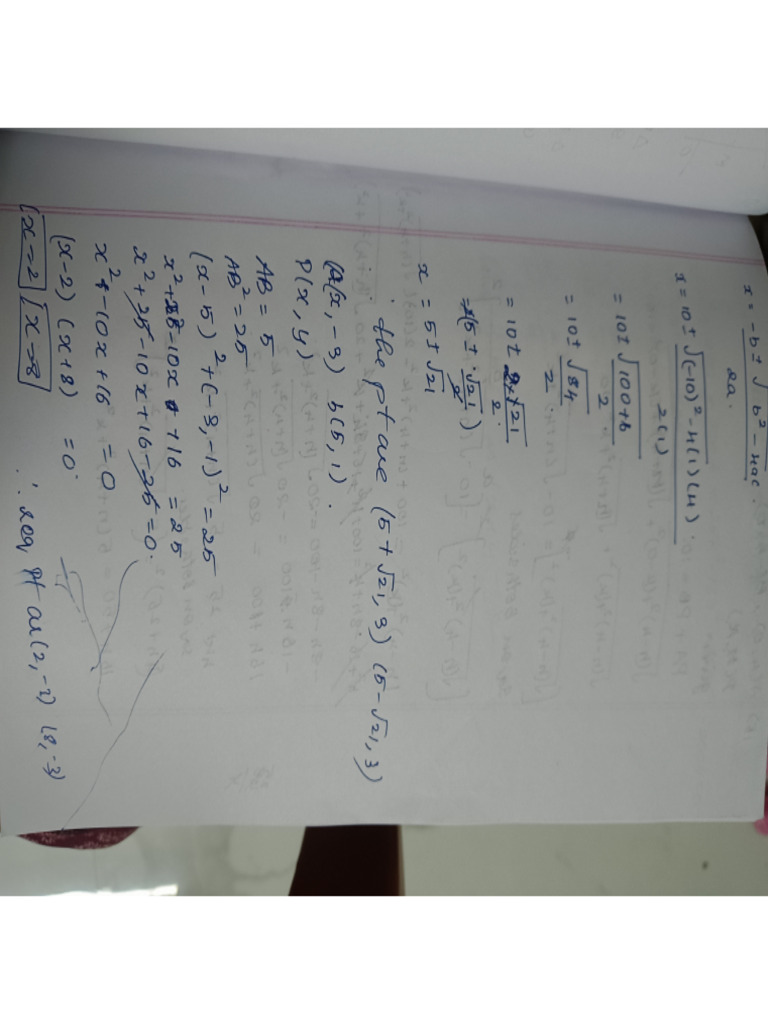 x = -b ± √b² - 4ac
2a.
x = 10 ± √(-10)² - 4(1)(4)
2(1)
= 10 ± √100+6
2
= 10 ± √84
2
= 10 ± 2√21
2.
= 2(5 ± √21)
2
x = 5 ± √21
∴ the pt are (5+√21, 3) (5-√21, 3)
(x, -3) b(5, 1).
P(x, y)
AB = 5
AB² = 25
(x-5)² + (-3,-1)² = 25
x² + 25 - 10x + 16 = 25
x² + 25 - 10x + 16 - 25 = 0.
x² - 10x + 16 = 0
(x-2) (x+8) = 0.
x = 2 x = 8
∴ pt are (2, -3) (8, -3)